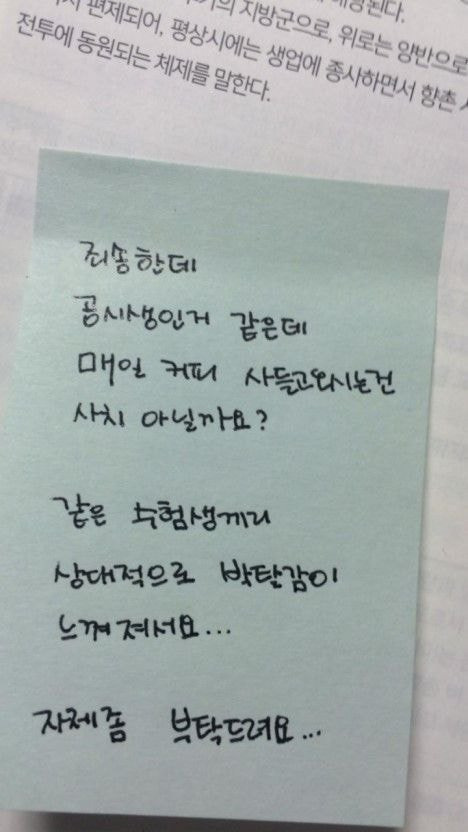 편제되어, 평상시에는 생업에 종사하면서 향촌
의 지방군으로, 위로는 양반으로
전투에 동원되는 체제를 말한다.
죄송한데
공시생인거 같은데
매일 커피 사들고오시는건
사치 아닐까요?
같은 수험생끼리
상대적으로 박탈감이
느껴져서요...
자제좀 부탁드려요...